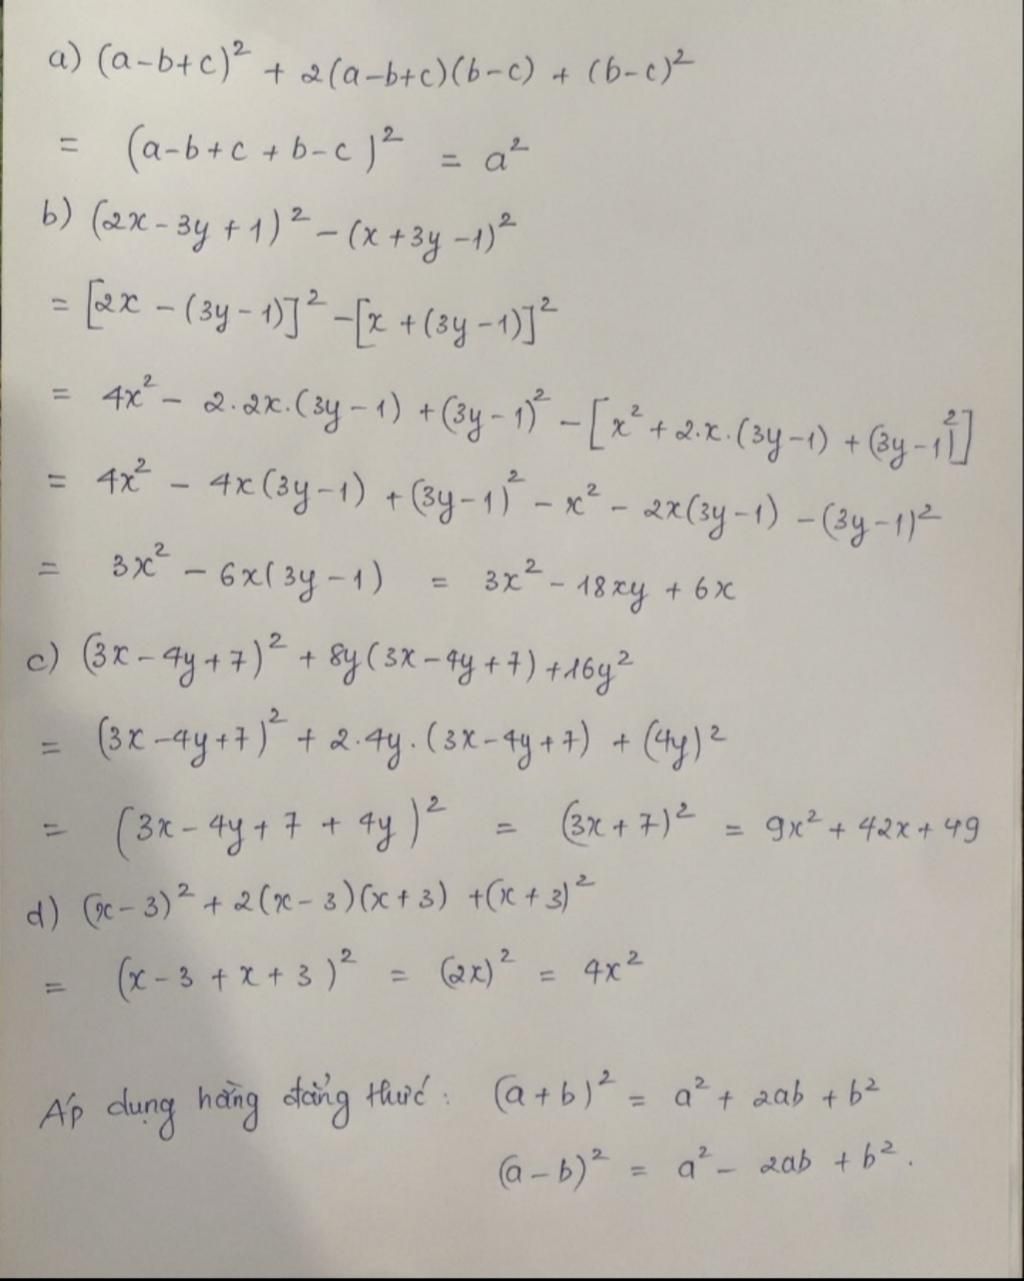 a) (a-b+c)² + 2(a-b+c)(b-c) + (b-c)²
= (a-b+c + b-c)² = a²
b) (2x - 3y + 1)² - (x + 3y - 1)²
= [2x - (3y - 1)]² - [x + (3y - 1)]²
= 4x² - 2.2x.(3y - 1) + (3y - 1)² - [x² + 2.x.(3y - 1) + (3y - 1)²]
= 4x² - 4x(3y - 1) + (3y - 1)² - x² - 2x(3y - 1) - (3y - 1)²
= 3x² - 6x(3y - 1) = 3x² - 18xy + 6x
c) (3x - 4y + 7)² + 8y(3x - 4y + 7) + 16y²
= (3x - 4y + 7)² + 2.4y.(3x - 4y + 7) + (4y)²
= (3x - 4y + 7 + 4y)² = (3x + 7)² = 9x² + 42x + 49
d) (x - 3)² + 2(x - 3)(x + 3) + (x + 3)²
= (x - 3 + x + 3)² = (2x)² = 4x²
Áp dụng hằng đẳng thức: (a + b)² = a² + 2ab + b²
(a - b)² = a² - 2ab + b².